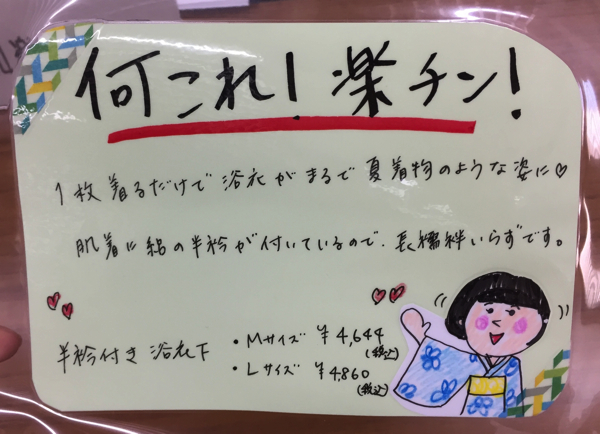 何これ!楽チン!
1枚着るだけで浴衣がまるで夏着物のような姿に♡
肌着に絽の半衿が付いているので、長襦袢いらずです。
半衿付き浴衣下
・Mサイズ ¥4,644(税込)
・Lサイズ ¥4,860(税込)